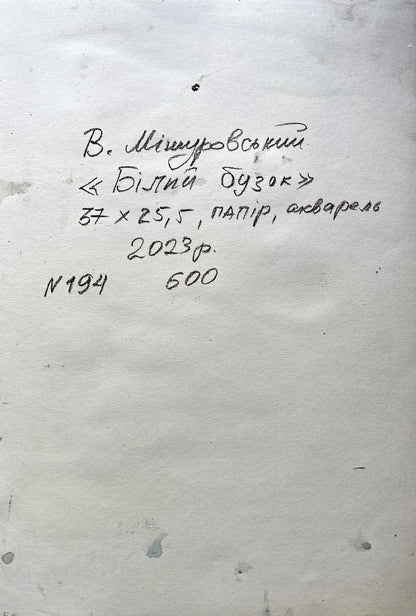 В. Мішуровський
« Білий бузок»
37 х 25,5, ПАПір, акварель
2023р.
N194 600